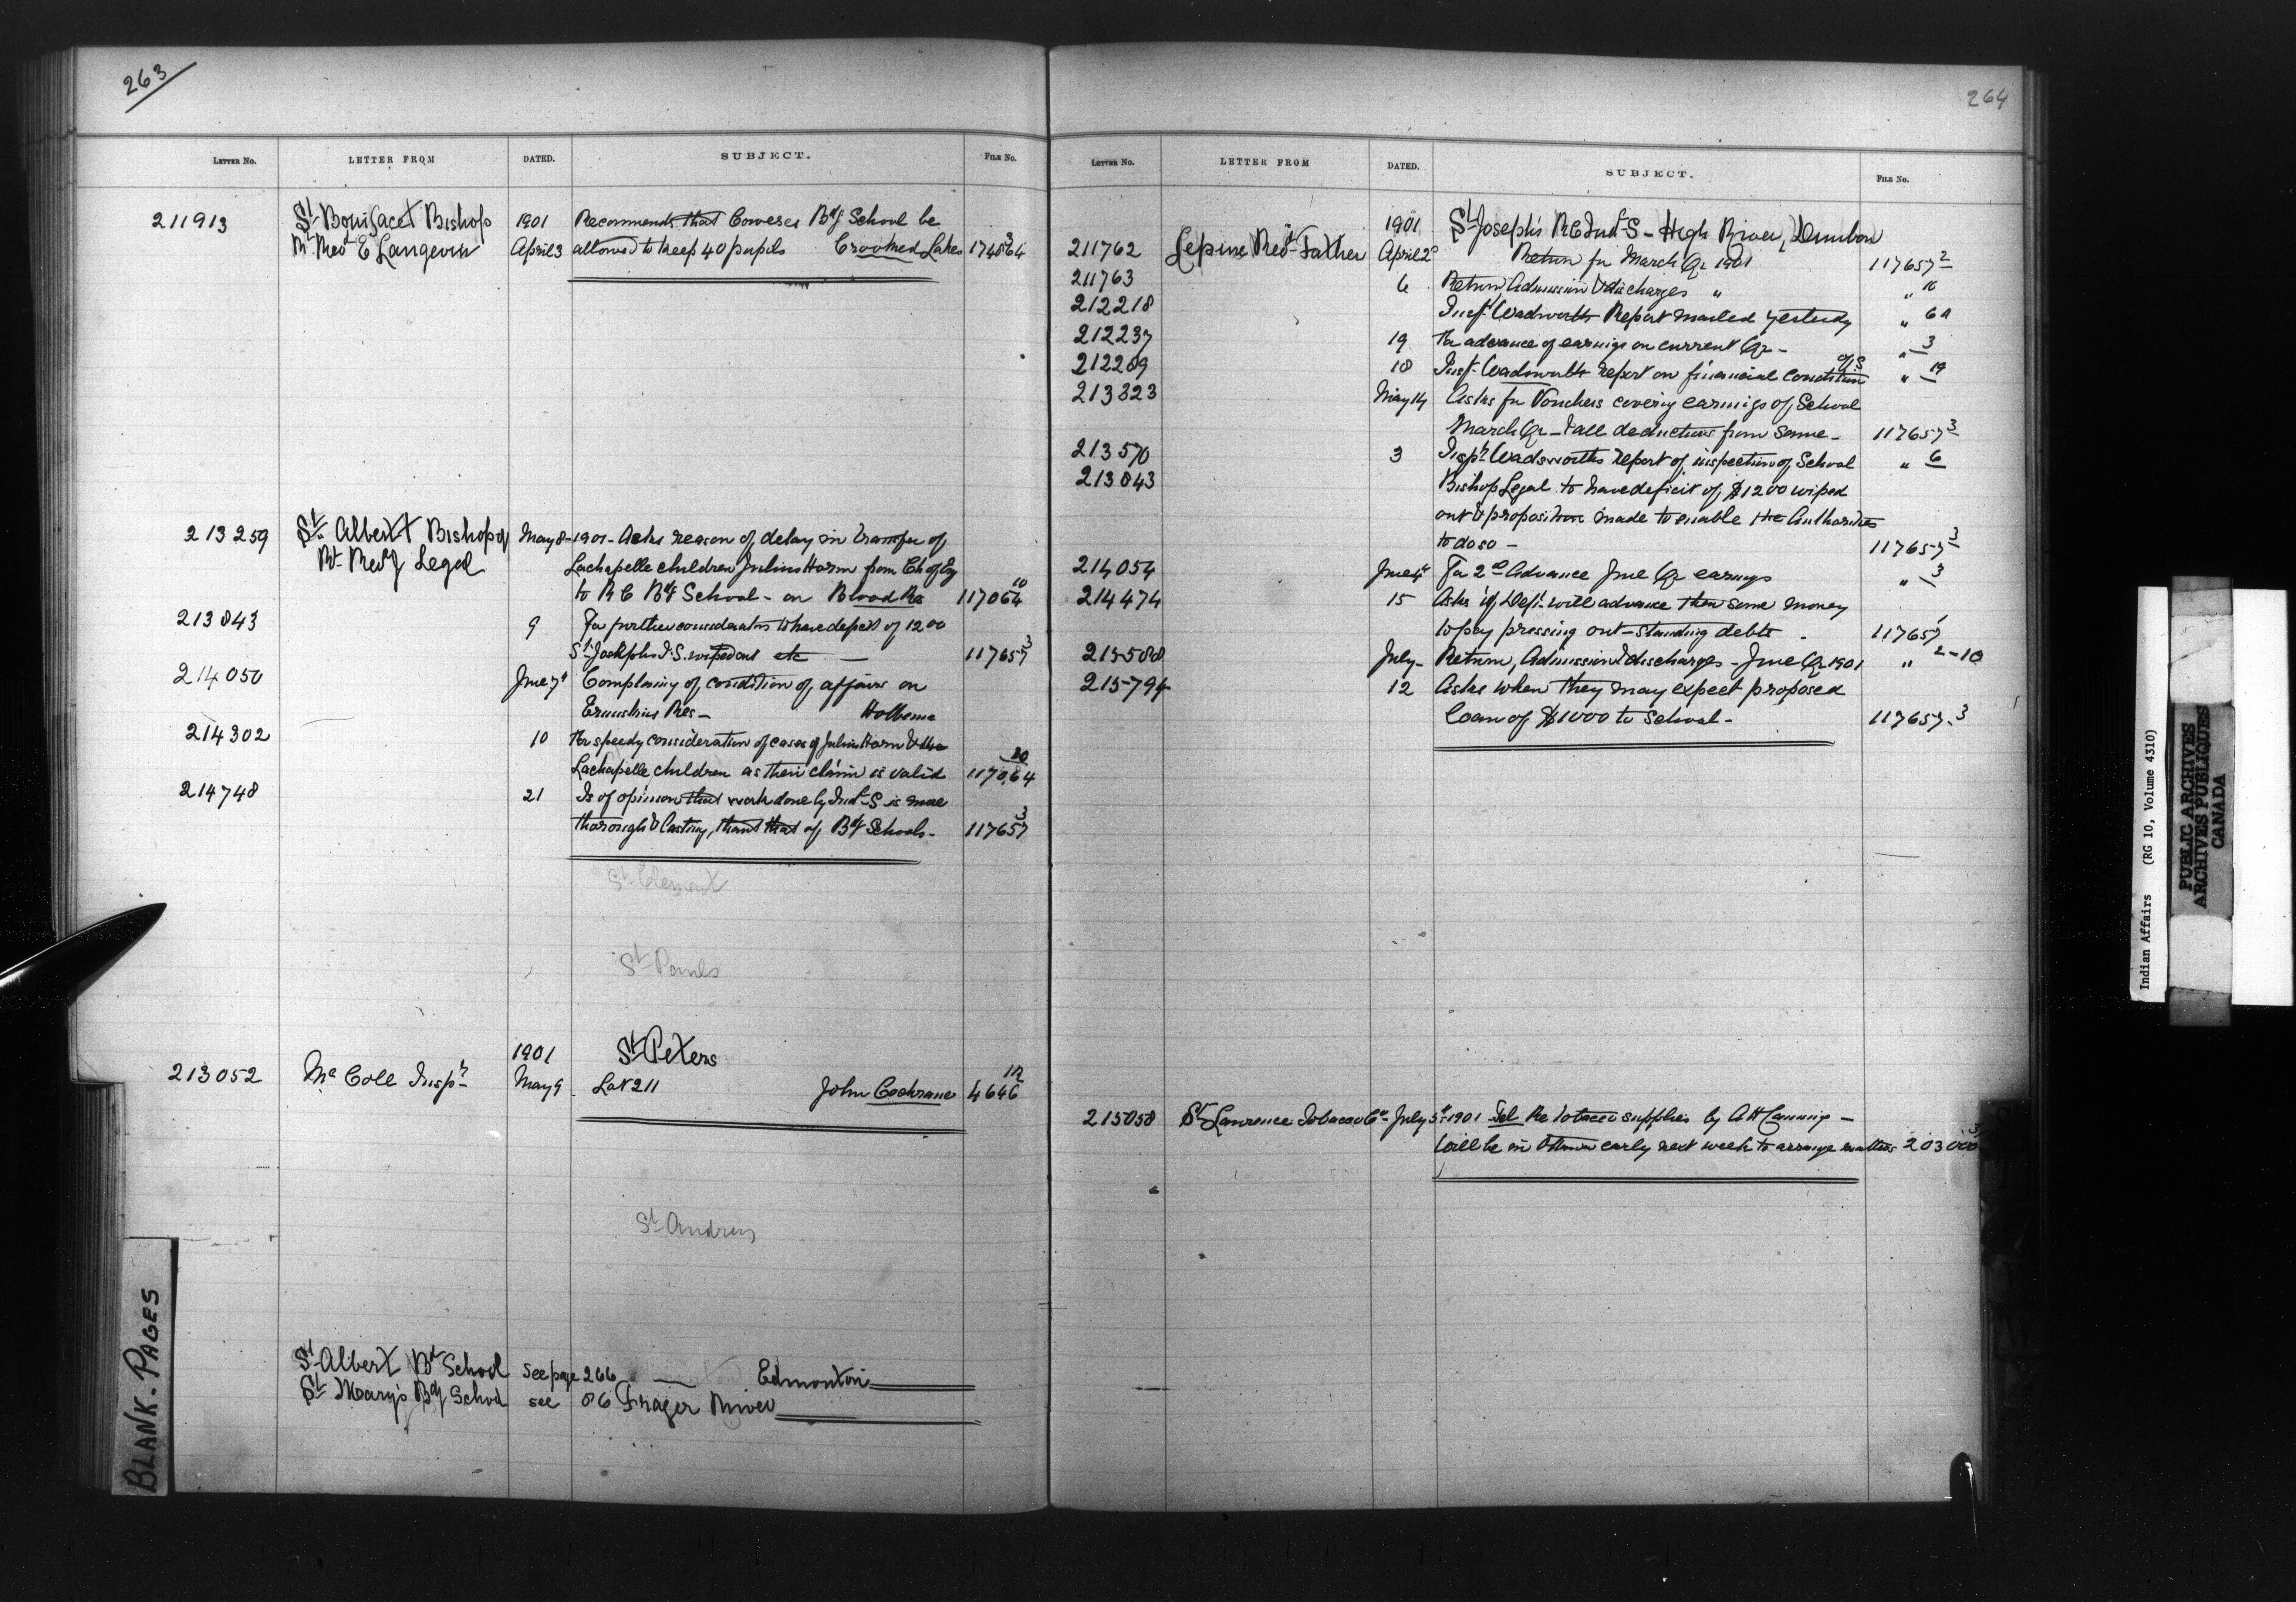 263
LETTER No. LETTER FROM DATED. SUBJECT. FILE No.
211913 St Boniface Bishop 1901 Recommends that Coweses Bdg School be
Rt Revd E Langevin April 3 allowed to keep 40 pupils Crooked Lakes 174564 3
213259 St Albert Bishop of May 8 - 1901 - Asks reason of delay in transfer of
Rt Revd Legal Lachapelle children Julius Horm from Ch of Eng
to R C Bdg School - on Blood Res 117064 10
213843 9 For further consideration to have deficit of 1200
St Josephs I.S. wiped out etc — 117657 3
214050 June 7 Complaing of condition of affairs on
Ermuskins Res - Hobbema
214302 10 For speedy consideration of cases of Julius Horm & the
Lachapelle children as their claim is valid 117064 20
214748 21 Is of opinion that work done by Indl S is more
thorough & lasting, than that of Bdg Schools - 117657 3
St Clement
St Pauls
1901 St Peters
213052 Mc Coll Inspr May 9 Lot 211 John Cochrane 4646 12
St Andrews
St Albert Bd School see page 266 Edmonton
St Mary's Bdg School see 86 Frazer River
BLANK. PAGES
264
LETTER No. LETTER FROM DATED. SUBJECT. FILE No.
1901 St Joseph's RC Indl S - High River, Dunbow
211762 Lepine Revd Father April 2 Return for March Qr 1901 117657 2
211763 6 Return Admission & discharges " " 10
212218 Inspr Wadsworths Report mailed yesterday " 6A
212237 19 For advance of earnings on current Qr - " 3
212269 18 Inspr Wadsworths report on financial condition of S " 19
213323 May 14 Asks for Vouchers covering earnings of School
March Qr - & all deductions from same - 117657 3
213570 3 Inspr Wadsworths report of inspection of School " 6
213843 Bishop Legal to have deficit of $1200 wiped
out & proposition made to enable the Authorities
to do so - 117657 3
214054 June 4 For 2d Advance June Qr earnings " 3
214474 15 Asks if Dept will advance them some money
to pay pressing out-standing debts - 117657 1
215588 July - Return, Admission & discharges - June Qr 1901 " 2-10
215794 12 Asks when they may expect proposed
loan of $1000 to school - 117657-3
215058 St Lawrence Tobacco Co - July 5th 1901 Tel Re Tobacco supplies by A H Canning -
Will be in Ottawa early next week to arrange matters 203000 3
Indian Affairs (RG 10, Volume 4310)
PUBLIC ARCHIVES
ARCHIVES PUBLIQUES
CANADA